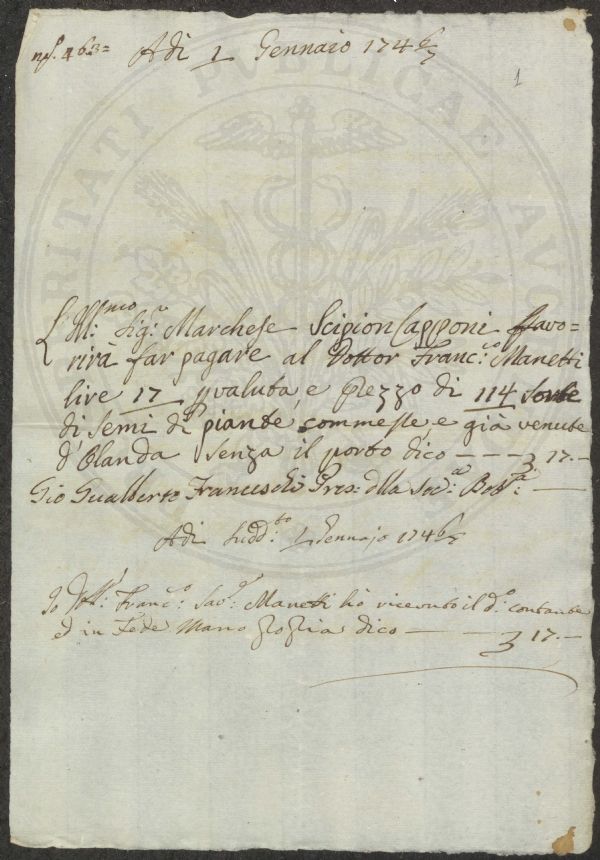 n.º 463=
Adì 1 Gennaio 1746/7
1
L'Ill:mo Sig:r Marchese Scipion Capponi favo=
rirà far pagare al Dottor Franc:co Manetti
lire 17 p valuta, e prezzo di 114 sorte
di semi di piante, commesse e già venute
d'Olanda senza il porto dico - - - 17.-
Gio Gualberto Franceschi Pres: dlla Soc:a Bot:a -
Adì sudd:to 1 Gennajo 1746/7
Io Dott:r Franc:o Sav:o Manetti hò ricevuto il d:o contante
ed in Fede Mano Propria dico - - - 17.-
CARITATI PUBLICAE